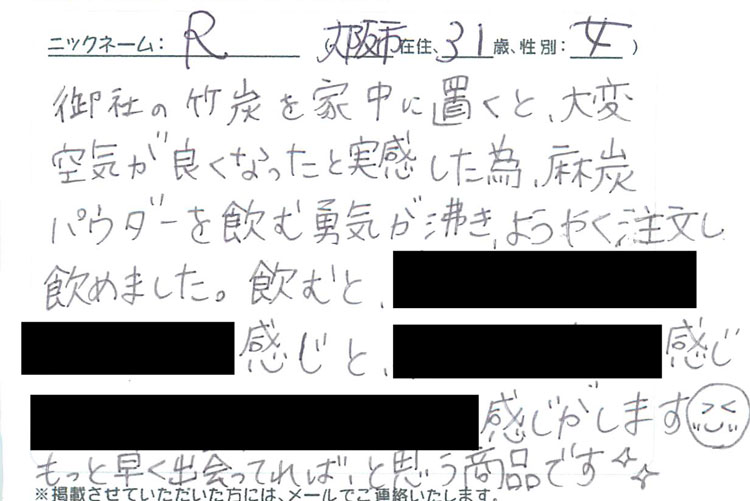 ニックネーム: R 大阪市在住、31歳、性別: 女 )
御社の竹炭を家中に置くと、大変
空気が良くなったと実感した為、麻炭
パウダーを飲む勇気が沸き、ようやく注文し
飲めました。飲むと、
感じと、感じ
感じがします
もっと早く出会ってれば、と思う商品です
※掲載させていただいた方には、メールでご連絡いたします。